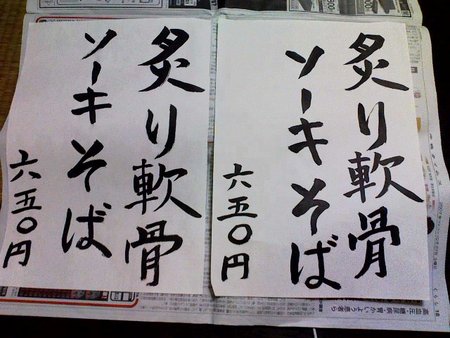 炙り軟骨
ソーキそば
六五〇円
炙り軟骨
ソーキそば
六五〇円